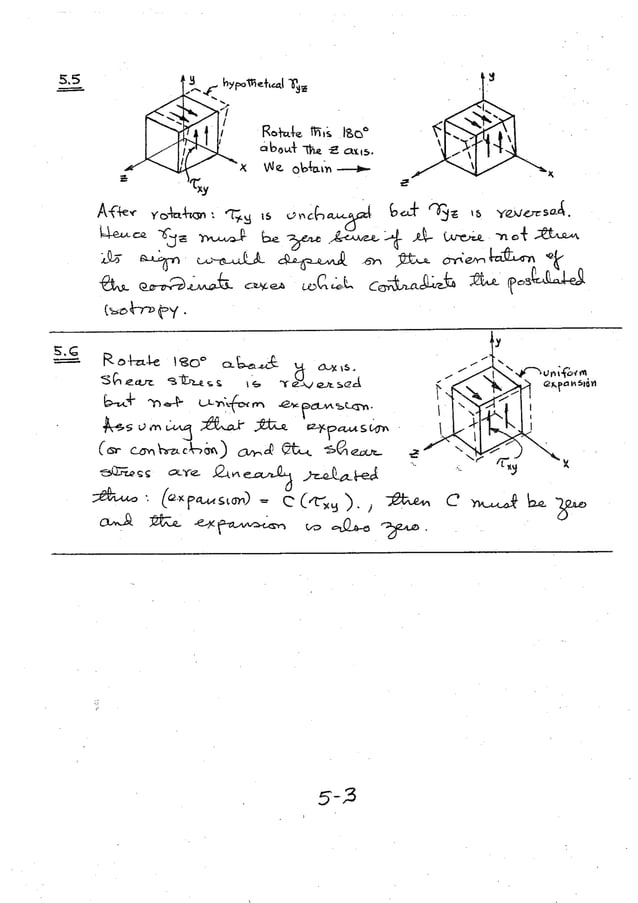 5.5
y
hypothetical γyz
y
Rotate this 180°
about the z axis.
We obtain →
z
x
τxy
z
x
After rotation: τxy is unchanged but γyz is reversed.
Hence γyz must be zero since if it were not then
its sign would depend on the orientation of
the coordinate axes which contradicts the postulated
isotropy.
5.6
Rotate 180° about y axis.
Shear stress is reversed
but not uniform expansion.
Assuming that the expansion
(or contraction) and the shear
stress are linearly related
thus: (expansion) = C (τxy)., then C must be zero
and the expansion is also zero.
y
uniform
expansion
z
τxy
x
5-3